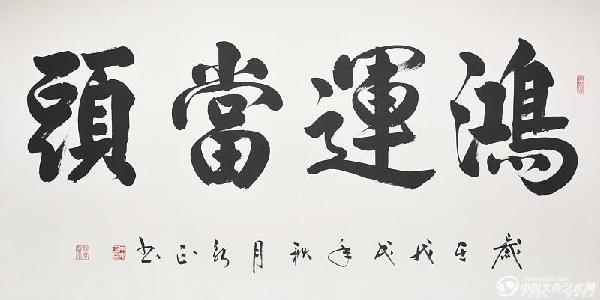 鴻運當頭
歲于戊戌年秋月正书
中国文化艺术网